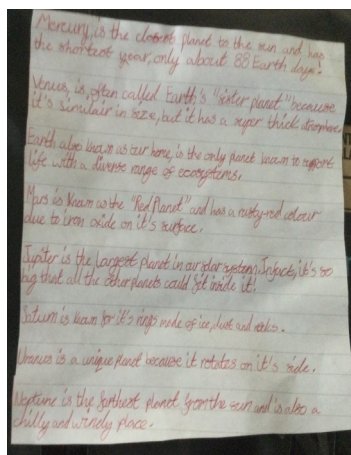 Mercury, is the closest planet to the sun and has
the shortest year, only about 88 Earth days!
Venus, is, often called Earth's "sister planet" because
it's simulair in size, but it has a super thick atmosphere
Earth also known as our home, is the only planet known to support
life with a diverse range of ecosystems.
Mars is known as the "Red Planet" and has a rusty-red colour
due to iron oxide on it's surface.
Jupiter is the largest planet in our solar system. Infact, it's so
big that all the other planets could fit inside it!
Saturn is known for it's rings made of ice, dust and rocks.
Uranus is a unique planet because it rotates on it's side.
Neptune is the farthest planet from the sun and is also a
chilly and windy place.